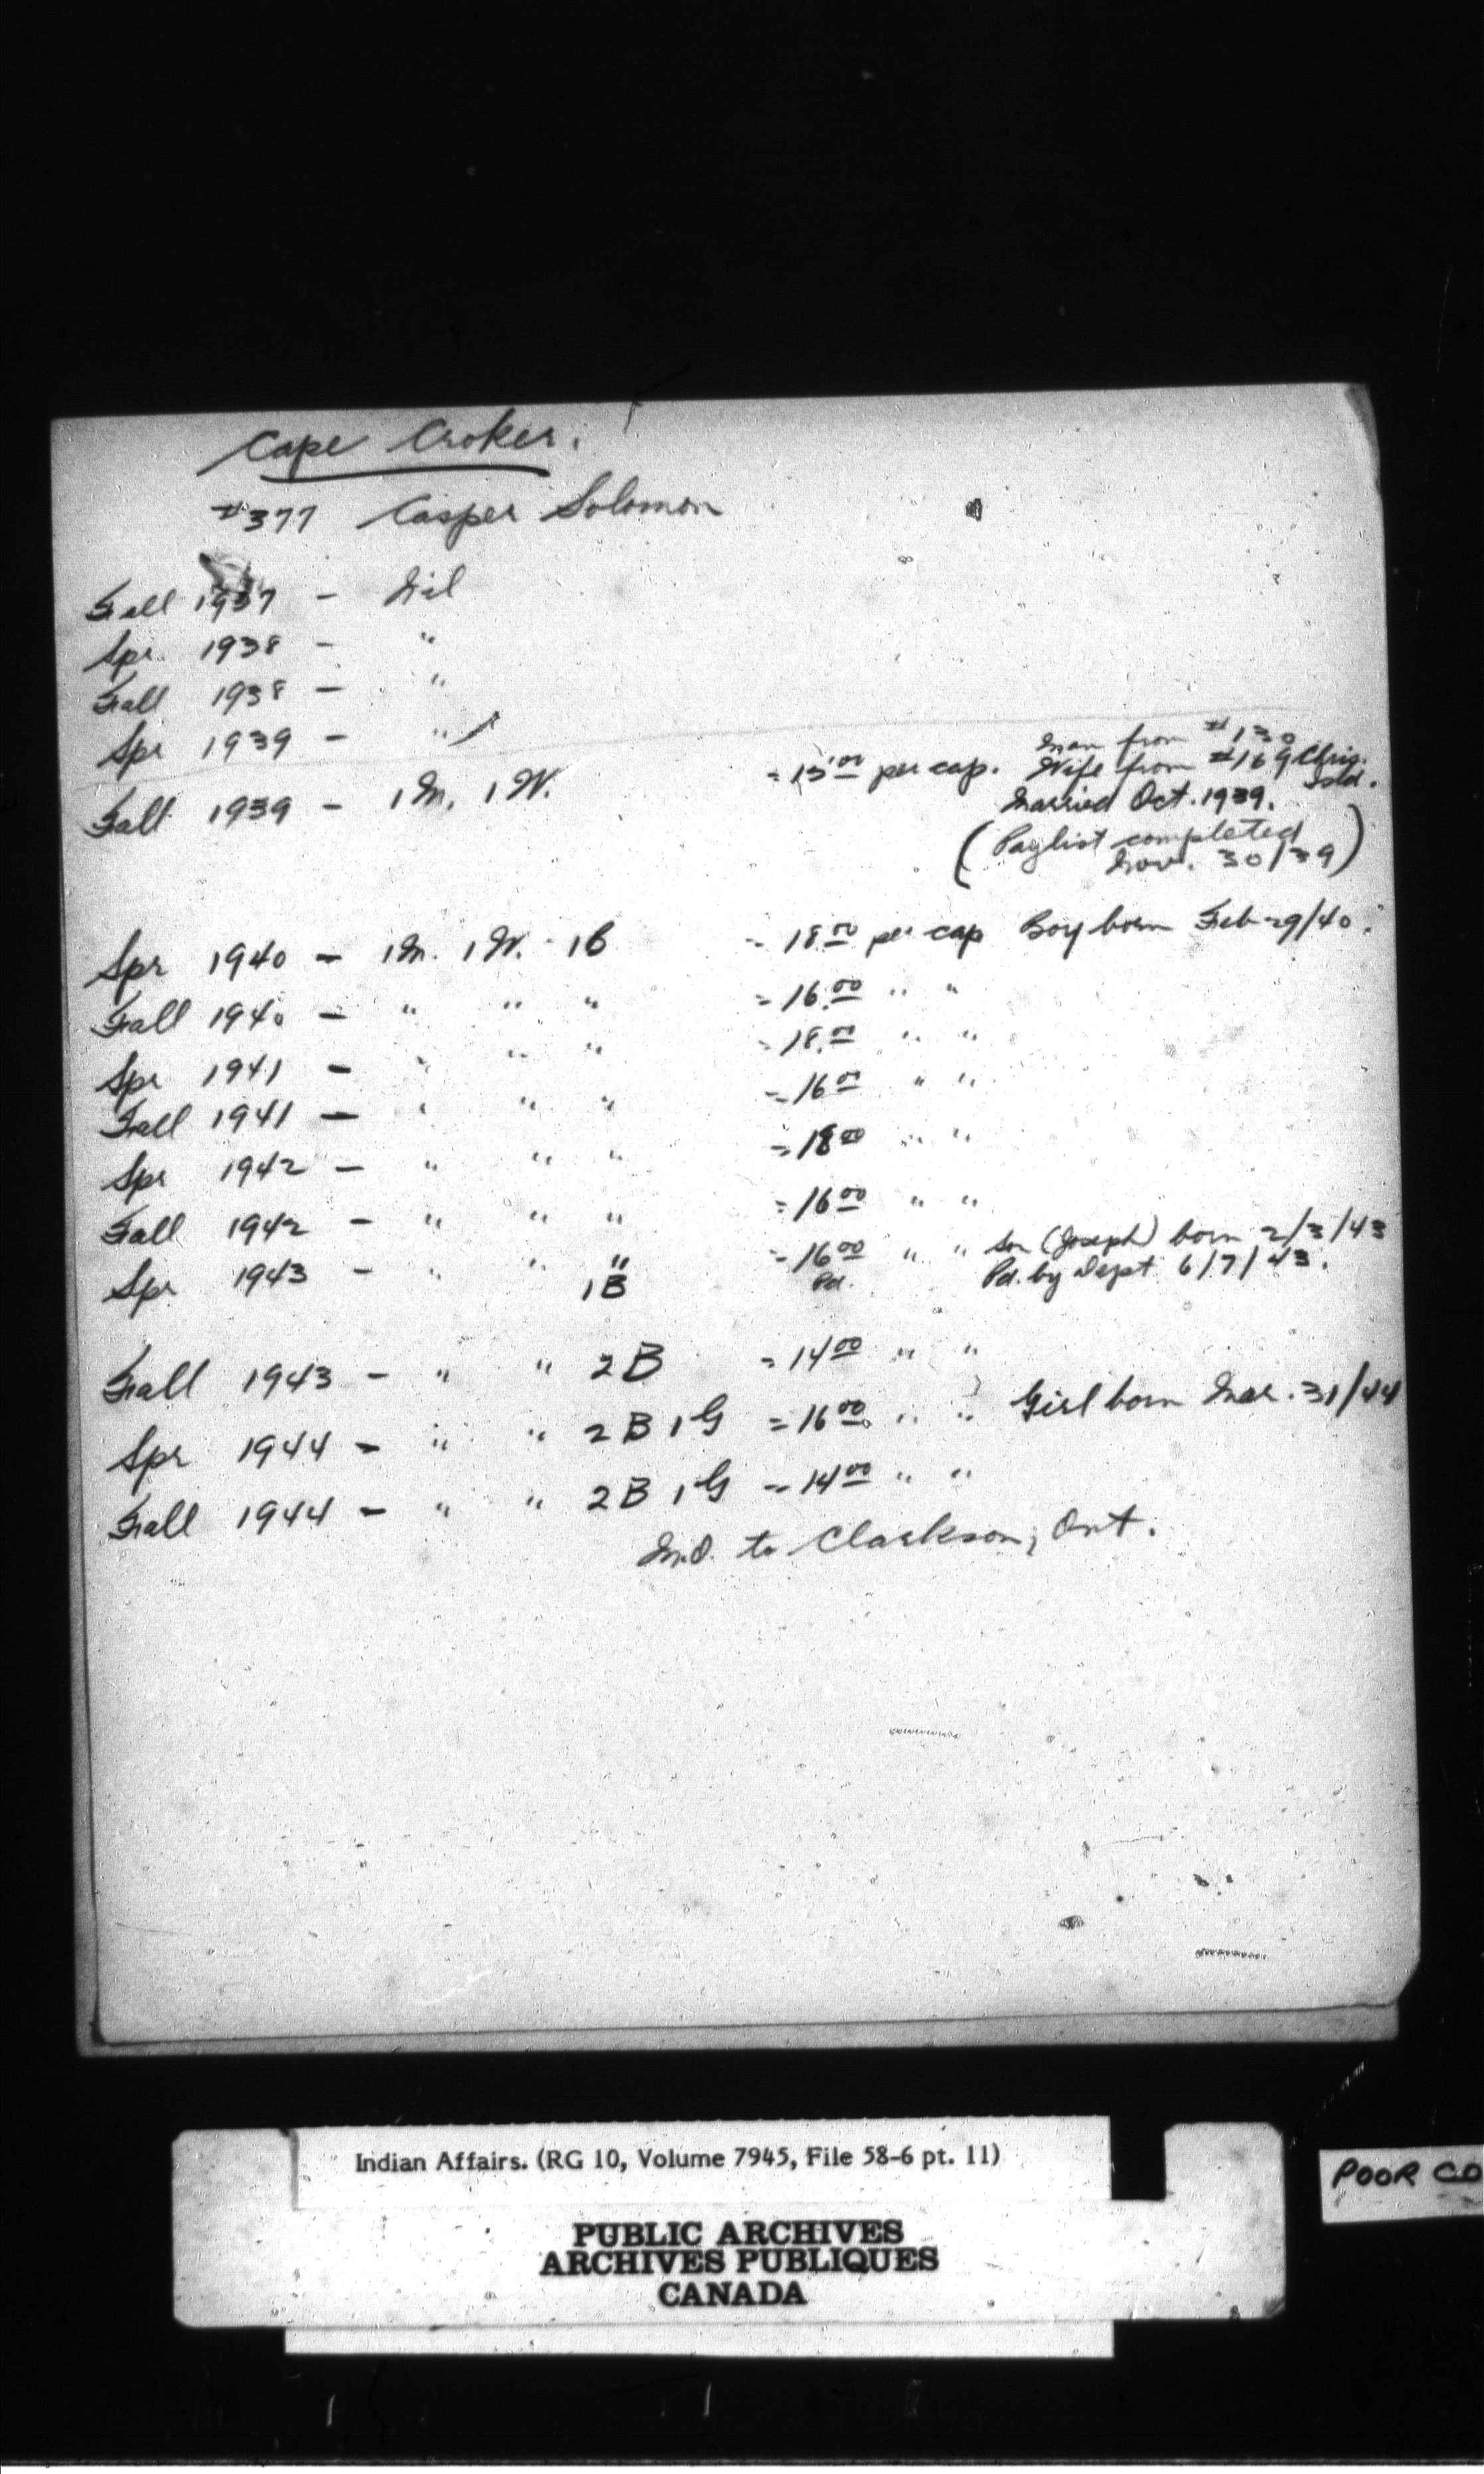 Cape Croker.
#377 Casper Solomon
Fall 1937 - Nil
Spr. 1938 - "
Fall 1938 - "
Spr 1939 - "
Man from #130
Fall 1939 - 1 M. 1 W. = 15.00 per cap. Wife from #169 Chris. Isld.
Married Oct. 1939.
(Paylist completed
Nov. 30/39)
Spr 1940 - 1 M. 1 W. 1 B = 18.00 per cap Boy born Feb 29/40.
Fall 1940 - " " " = 16.00 " "
Spr 1941 - " " " = 18.00 " "
Fall 1941 - " " " = 16 00 " "
Spr 1942 - " " " = 18 00 " "
Fall 1942 - " " " = 16 00 " "
Spr 1943 - " " " = 16 00 " " Son (Joseph) born 2/3/43
1B Pd. Pd. by Dept 6/7/43.
Fall 1943 - " " 2 B = 14 00 " "
Spr 1944 - " " 2 B 1 G = 16 00 " " Girl born Mar. 31/44
Fall 1944 - " " 2 B 1 G = 14 00 " "
M.O. to Clarkson, Ont.
Indian Affairs. (RG 10, Volume 7945, File 58-6 pt. 11)
PUBLIC ARCHIVES
ARCHIVES PUBLIQUES
CANADA
POOR CO